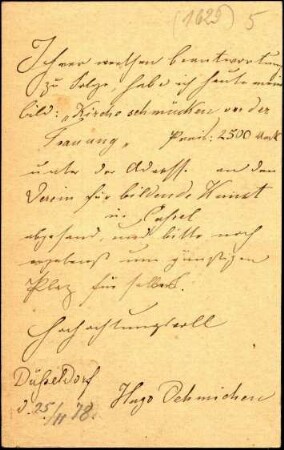 (1629) 5
Ihrer werthen Beantwortung
zu Folge, habe ich heute mein
Bild: „Kirche schmücken vor der
Trauung„ Preis: 2500 Mark
unter der Adresse an den
Verein für bildende Kunst
in Cassel
abgesand, und bitte noch
um günstigen
Platz für selbes.
Hochachtungsvoll
Düsseldorf
d. 25/11 78. Hugo Oehmichen